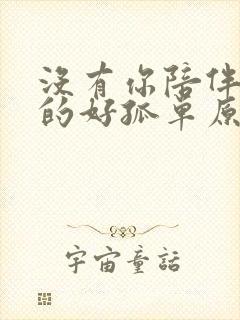 没有你陪伴
的好孤单原
宇宙童話